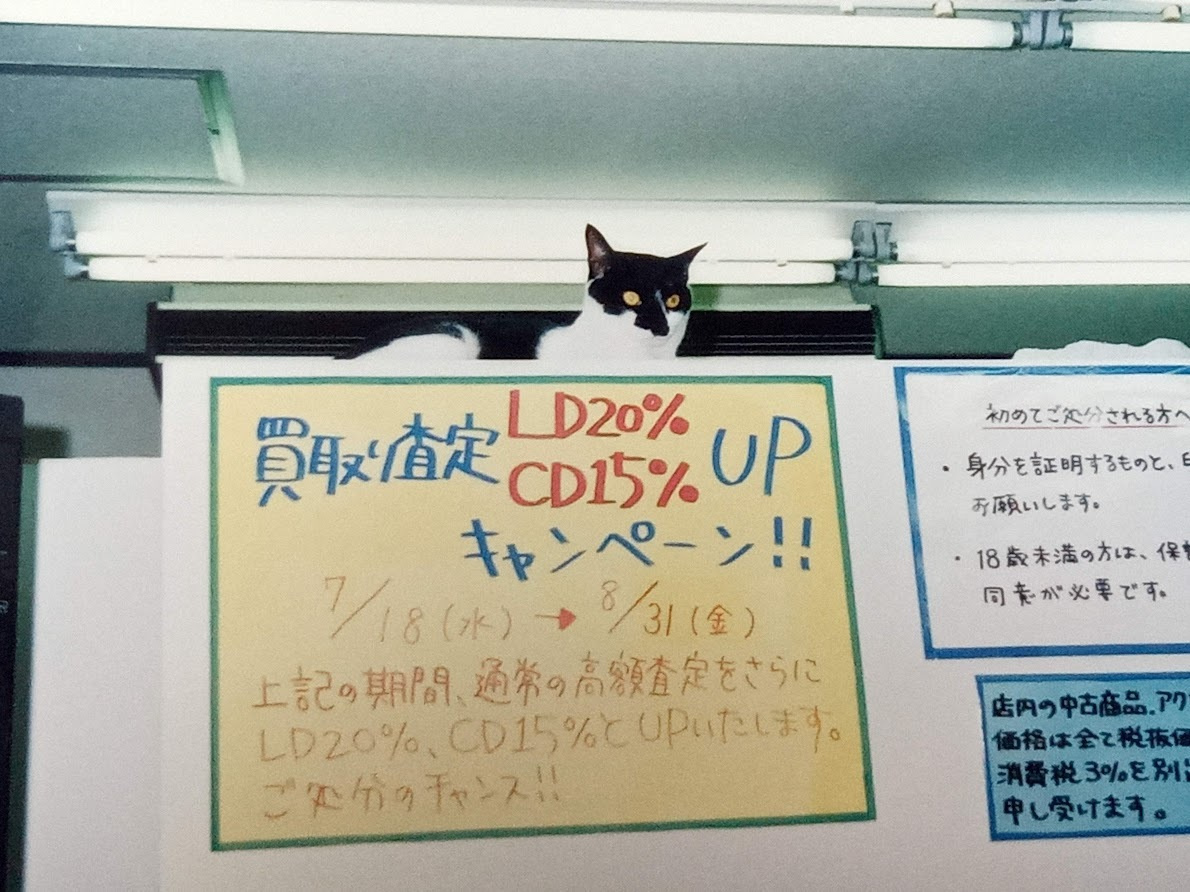 買取り査定 LD20% CD15% UP
キャンペーン!!
7/18(水)→8/31(金)
上記の期間、通常の高額査定をさらに
LD20%、CD15%とUPいたします。
ご処分のチャンス!!
初めてご処分される方へ
・身分を証明するものと、
お願いします。
・18歳未満の方は、保
同意が必要です。
店内の中古商品、アク
価格は全て税抜価
消費税3%を別
申し受けます。